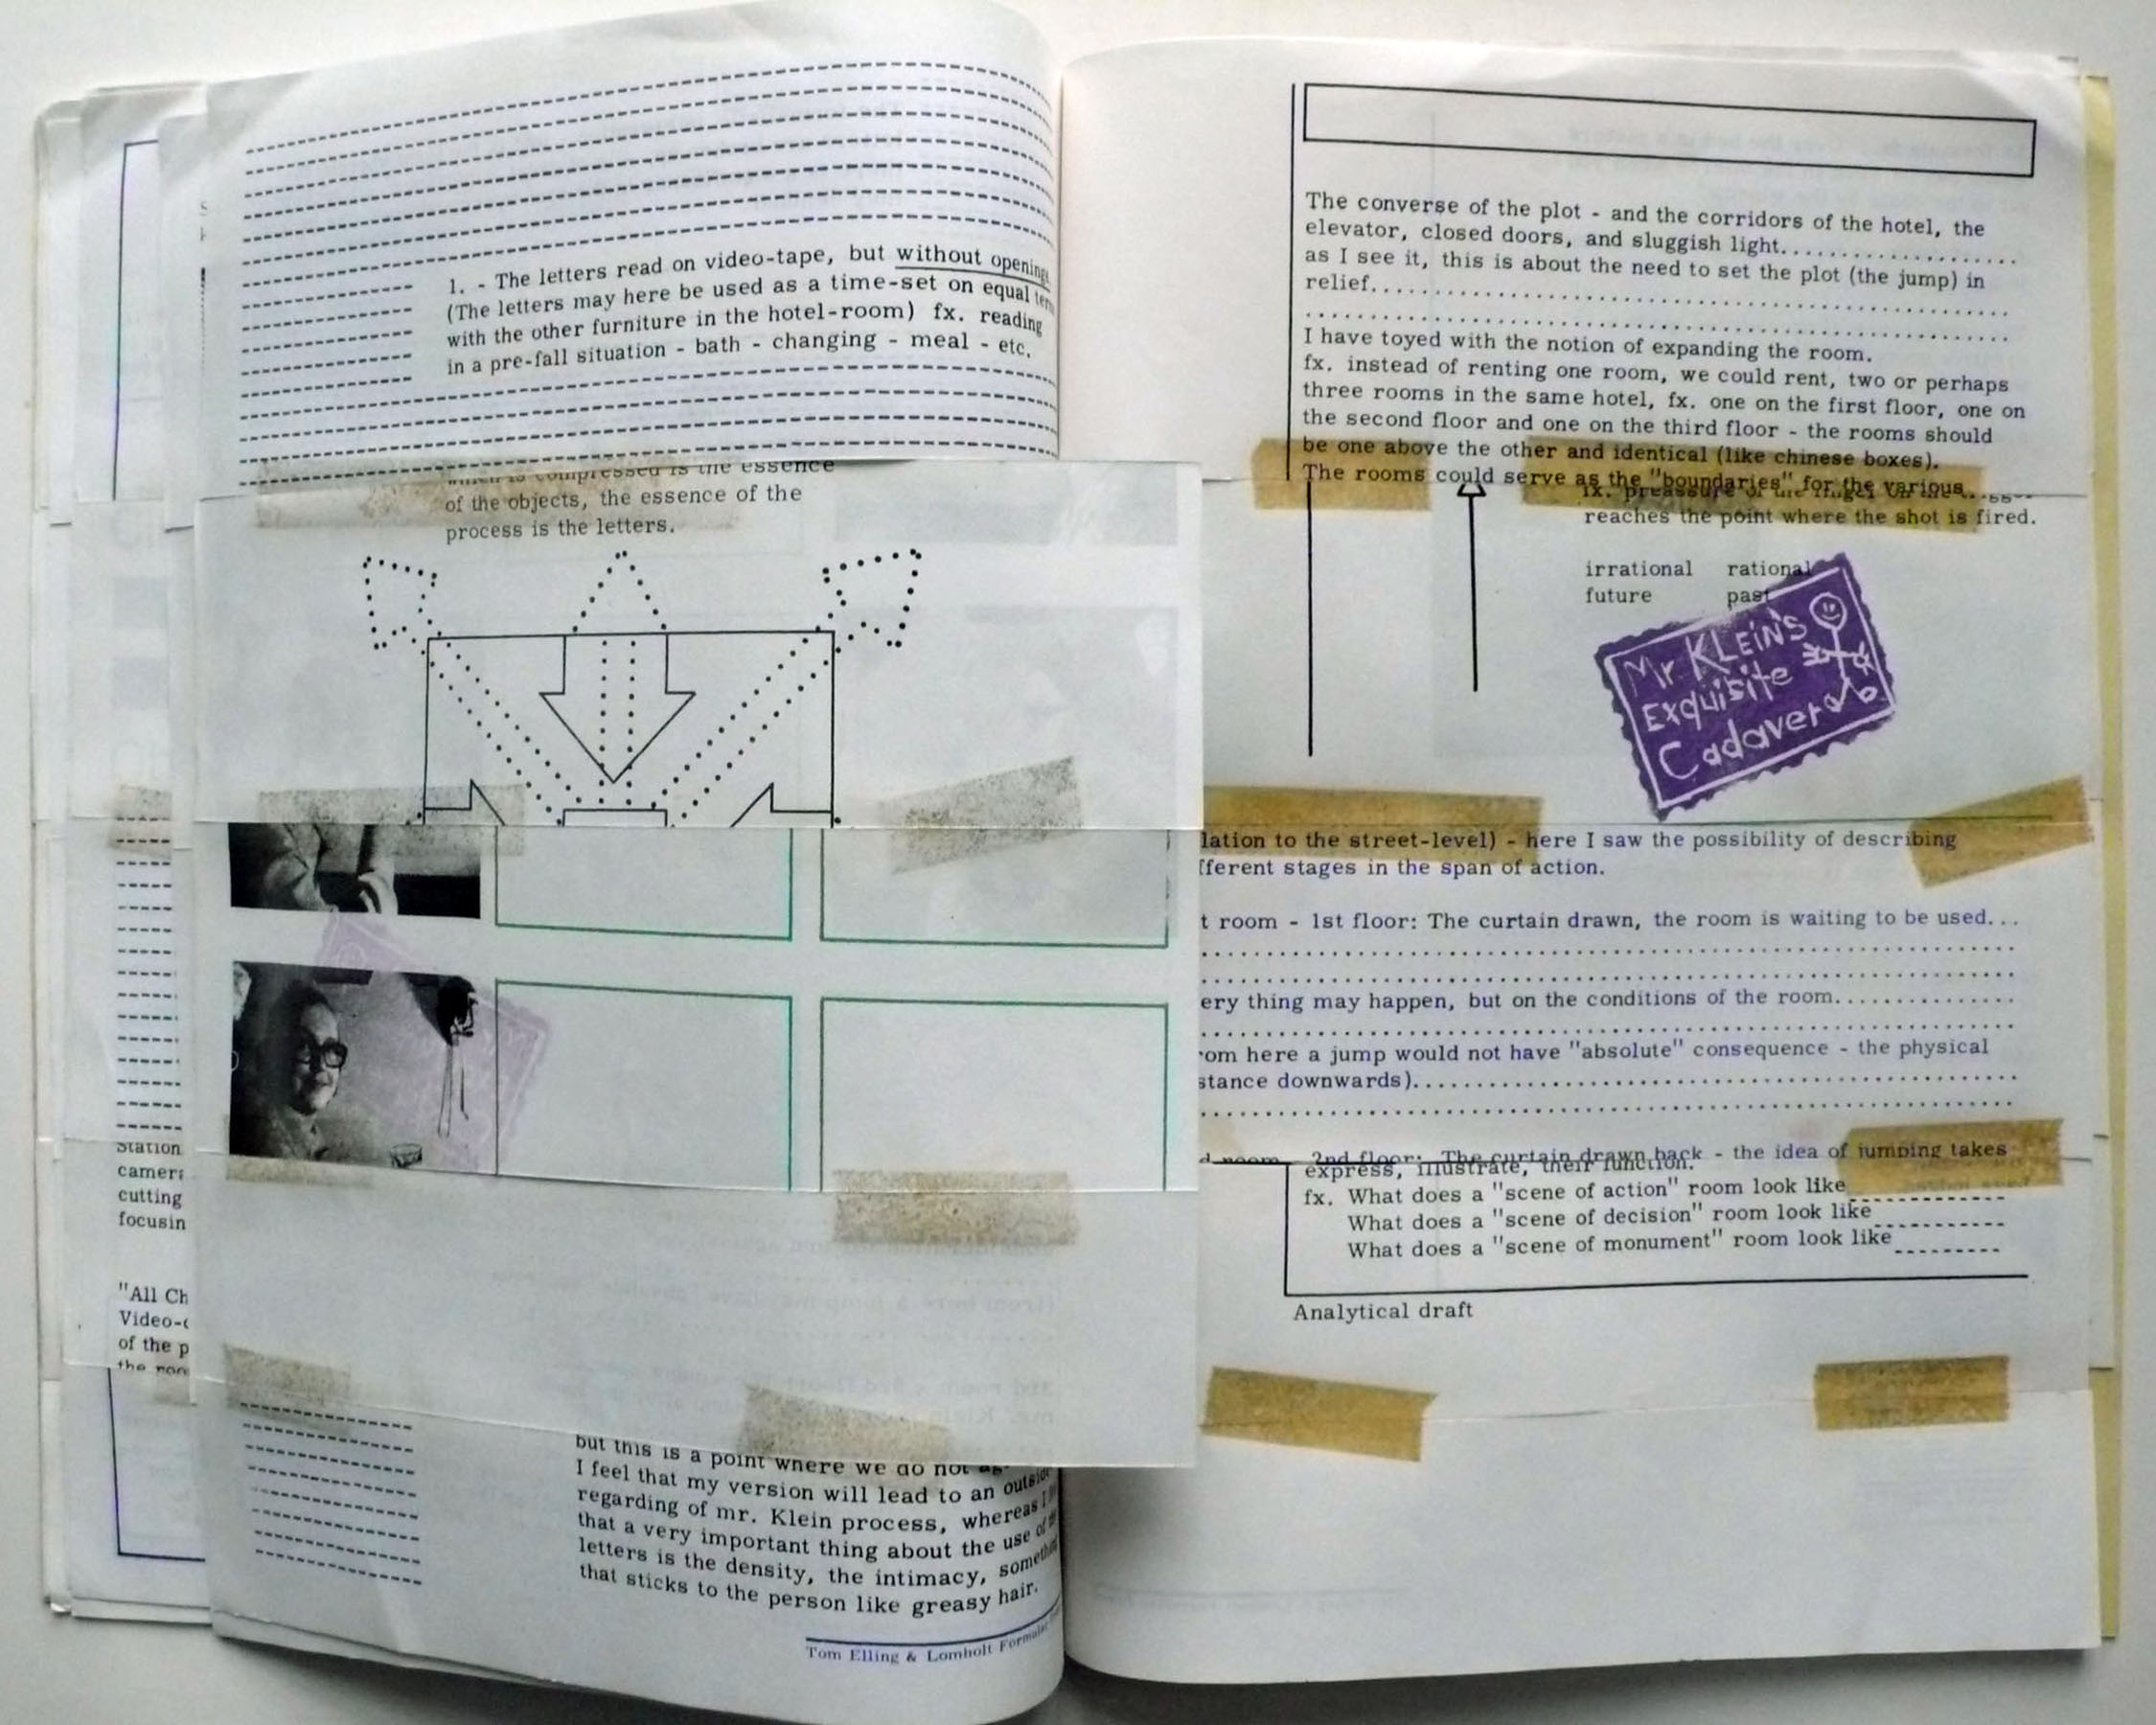 1. - The letters read on video-tape, but without openings
(The letters may here be used as a time-set on equal
with the other furniture in the hotel-room) fx. reading
in a pre-fall situation - bath - changing - meal - etc.
which is compressed is the essence
of the objects, the essence of the
process is the letters.
Station
cutting
"All
of the
the
but this is a point where we do not
I feel that my version will lead to an outside
regarding of mr. Klein process, whereas I
that a very important thing about the use of
letters is the density, the intimacy,
that sticks to the person like greasy hair.
Tom Elling & Lomholt Formular
The converse of the plot - and the corridors of the hotel, the
elevator, closed doors, and sluggish light....................
as I see it, this is about the need to set the plot (the jump) in
relief........................................................
I have toyed with the notion of expanding the room.
fx. instead of renting one room, we could rent, two or perhaps
three rooms in the same hotel, fx. one on the first floor, one on
the second floor and one on the third floor - the rooms should
be one above the other and identical (like chinese boxes).
The rooms could serve as the "boundaries" for the various...
fx. preassure of the
reaches the point where the shot is fired.
irrational rational
future past
Mr KLEiN'S
Exquisite
Cadaver
lation to the street-level) - here I saw the possibility of describing
fferent stages in the span of action.
t room - 1st floor: The curtain drawn, the room is waiting to be used...
ery thing may happen, but on the conditions of the room...............
om here a jump would not have "absolute" consequence - the physical
stance downwards)..................................................
room 2nd floor: The curtain drawn back - the idea of jumping takes
express, illustrate, their function.
fx. What does a "scene of action" room look like
What does a "scene of decision" room look like
What does a "scene of monument" room look like
Analytical draft